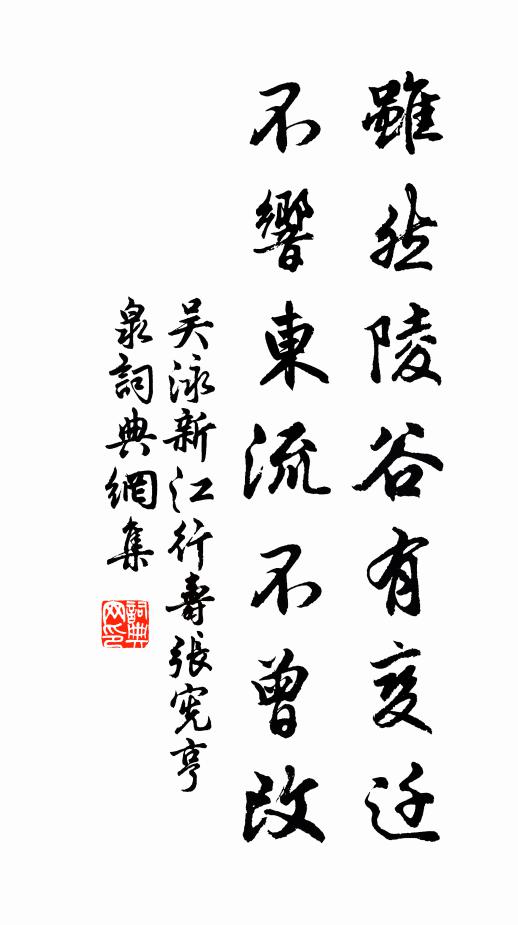 雖然陵谷有变迁
不響東流不曾改
吴泳新江行壽張宪亨
泉詞典網集
詞典
网印